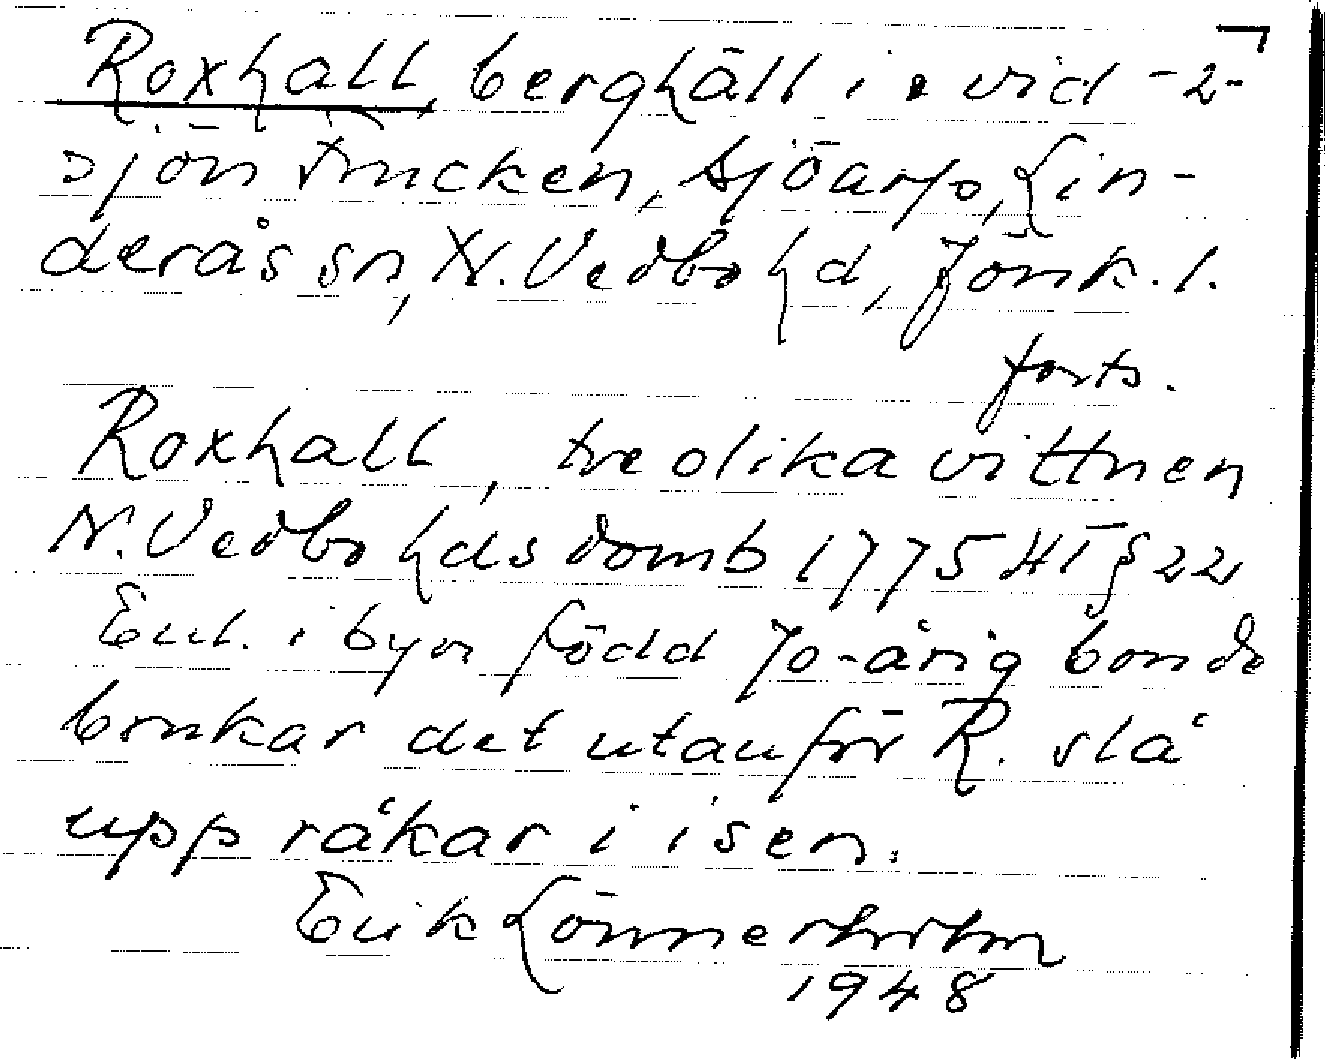 Roxhall, berghäll i o vid -2-
sjön Trucken, Sjöarp, Lin-
derås sn, N. Vedbo hd, Jönk. l.
forts.
Roxhall, tre olika vittnen
N. Vedbo hds domb 1775 HT § 22
Enl. i byn född 70-årig bonde
brukar det utanför R. slå
upp råkar i isen.
Erik Lönnerholm
1948